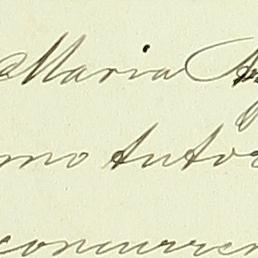 Maria
mo Autor
concurren